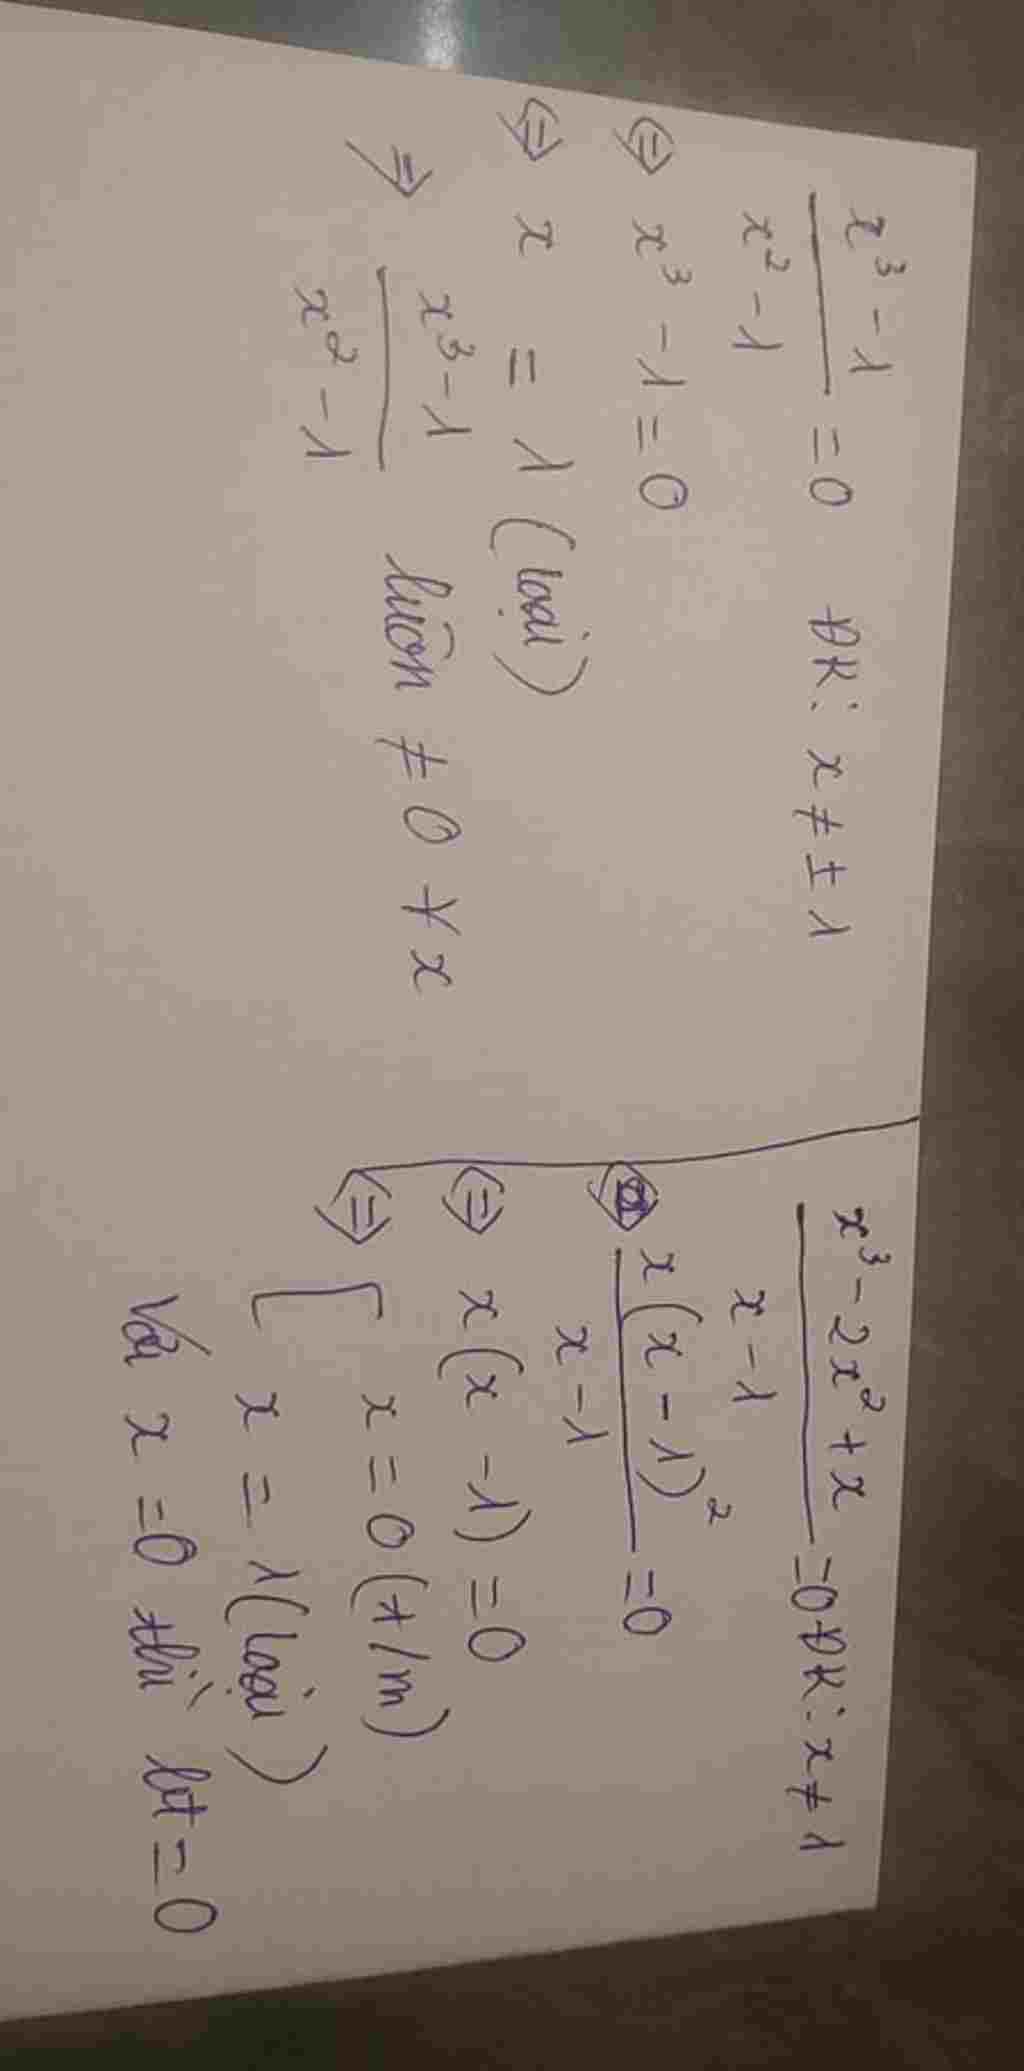 x³ - 1 / x² - 1 = 0 ĐK: x ≠ ± 1
⇔ x³ - 1 = 0
⇔ x = 1 (loại)
⇒ x³ - 1 / x² - 1 luôn ≠ 0 ∀ x
x³ - 2x² + x / x - 1 = 0 ĐK: x ≠ 1
⇔ x(x - 1)² / x - 1 = 0
⇔ x(x - 1) = 0
⇔ [ x = 0 (t/m)
x = 1 (loại)
Với x = 0 thì bt = 0